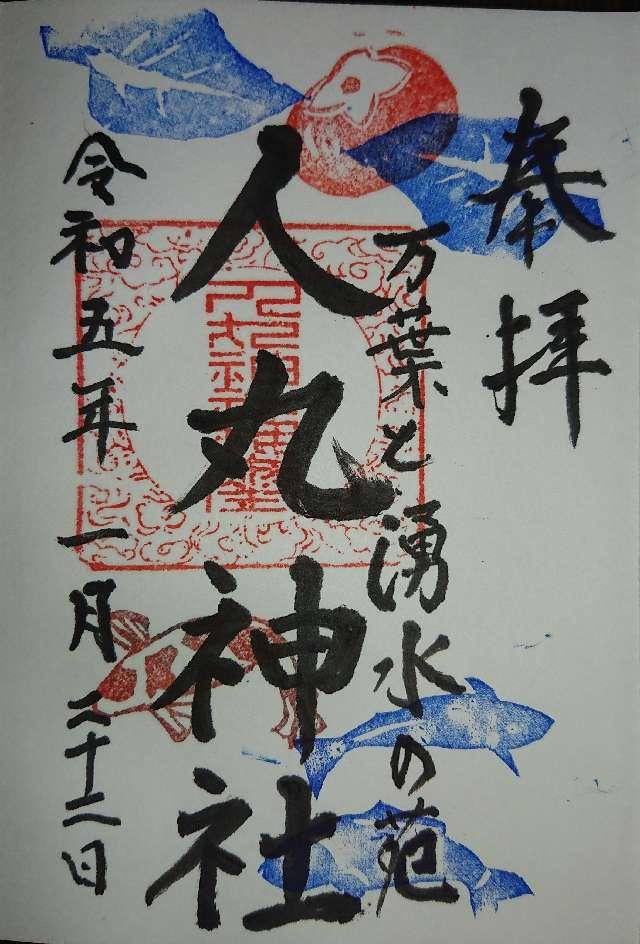 奉拝
万葉と湧水の苑
人丸神社
令和五年一月二十二日